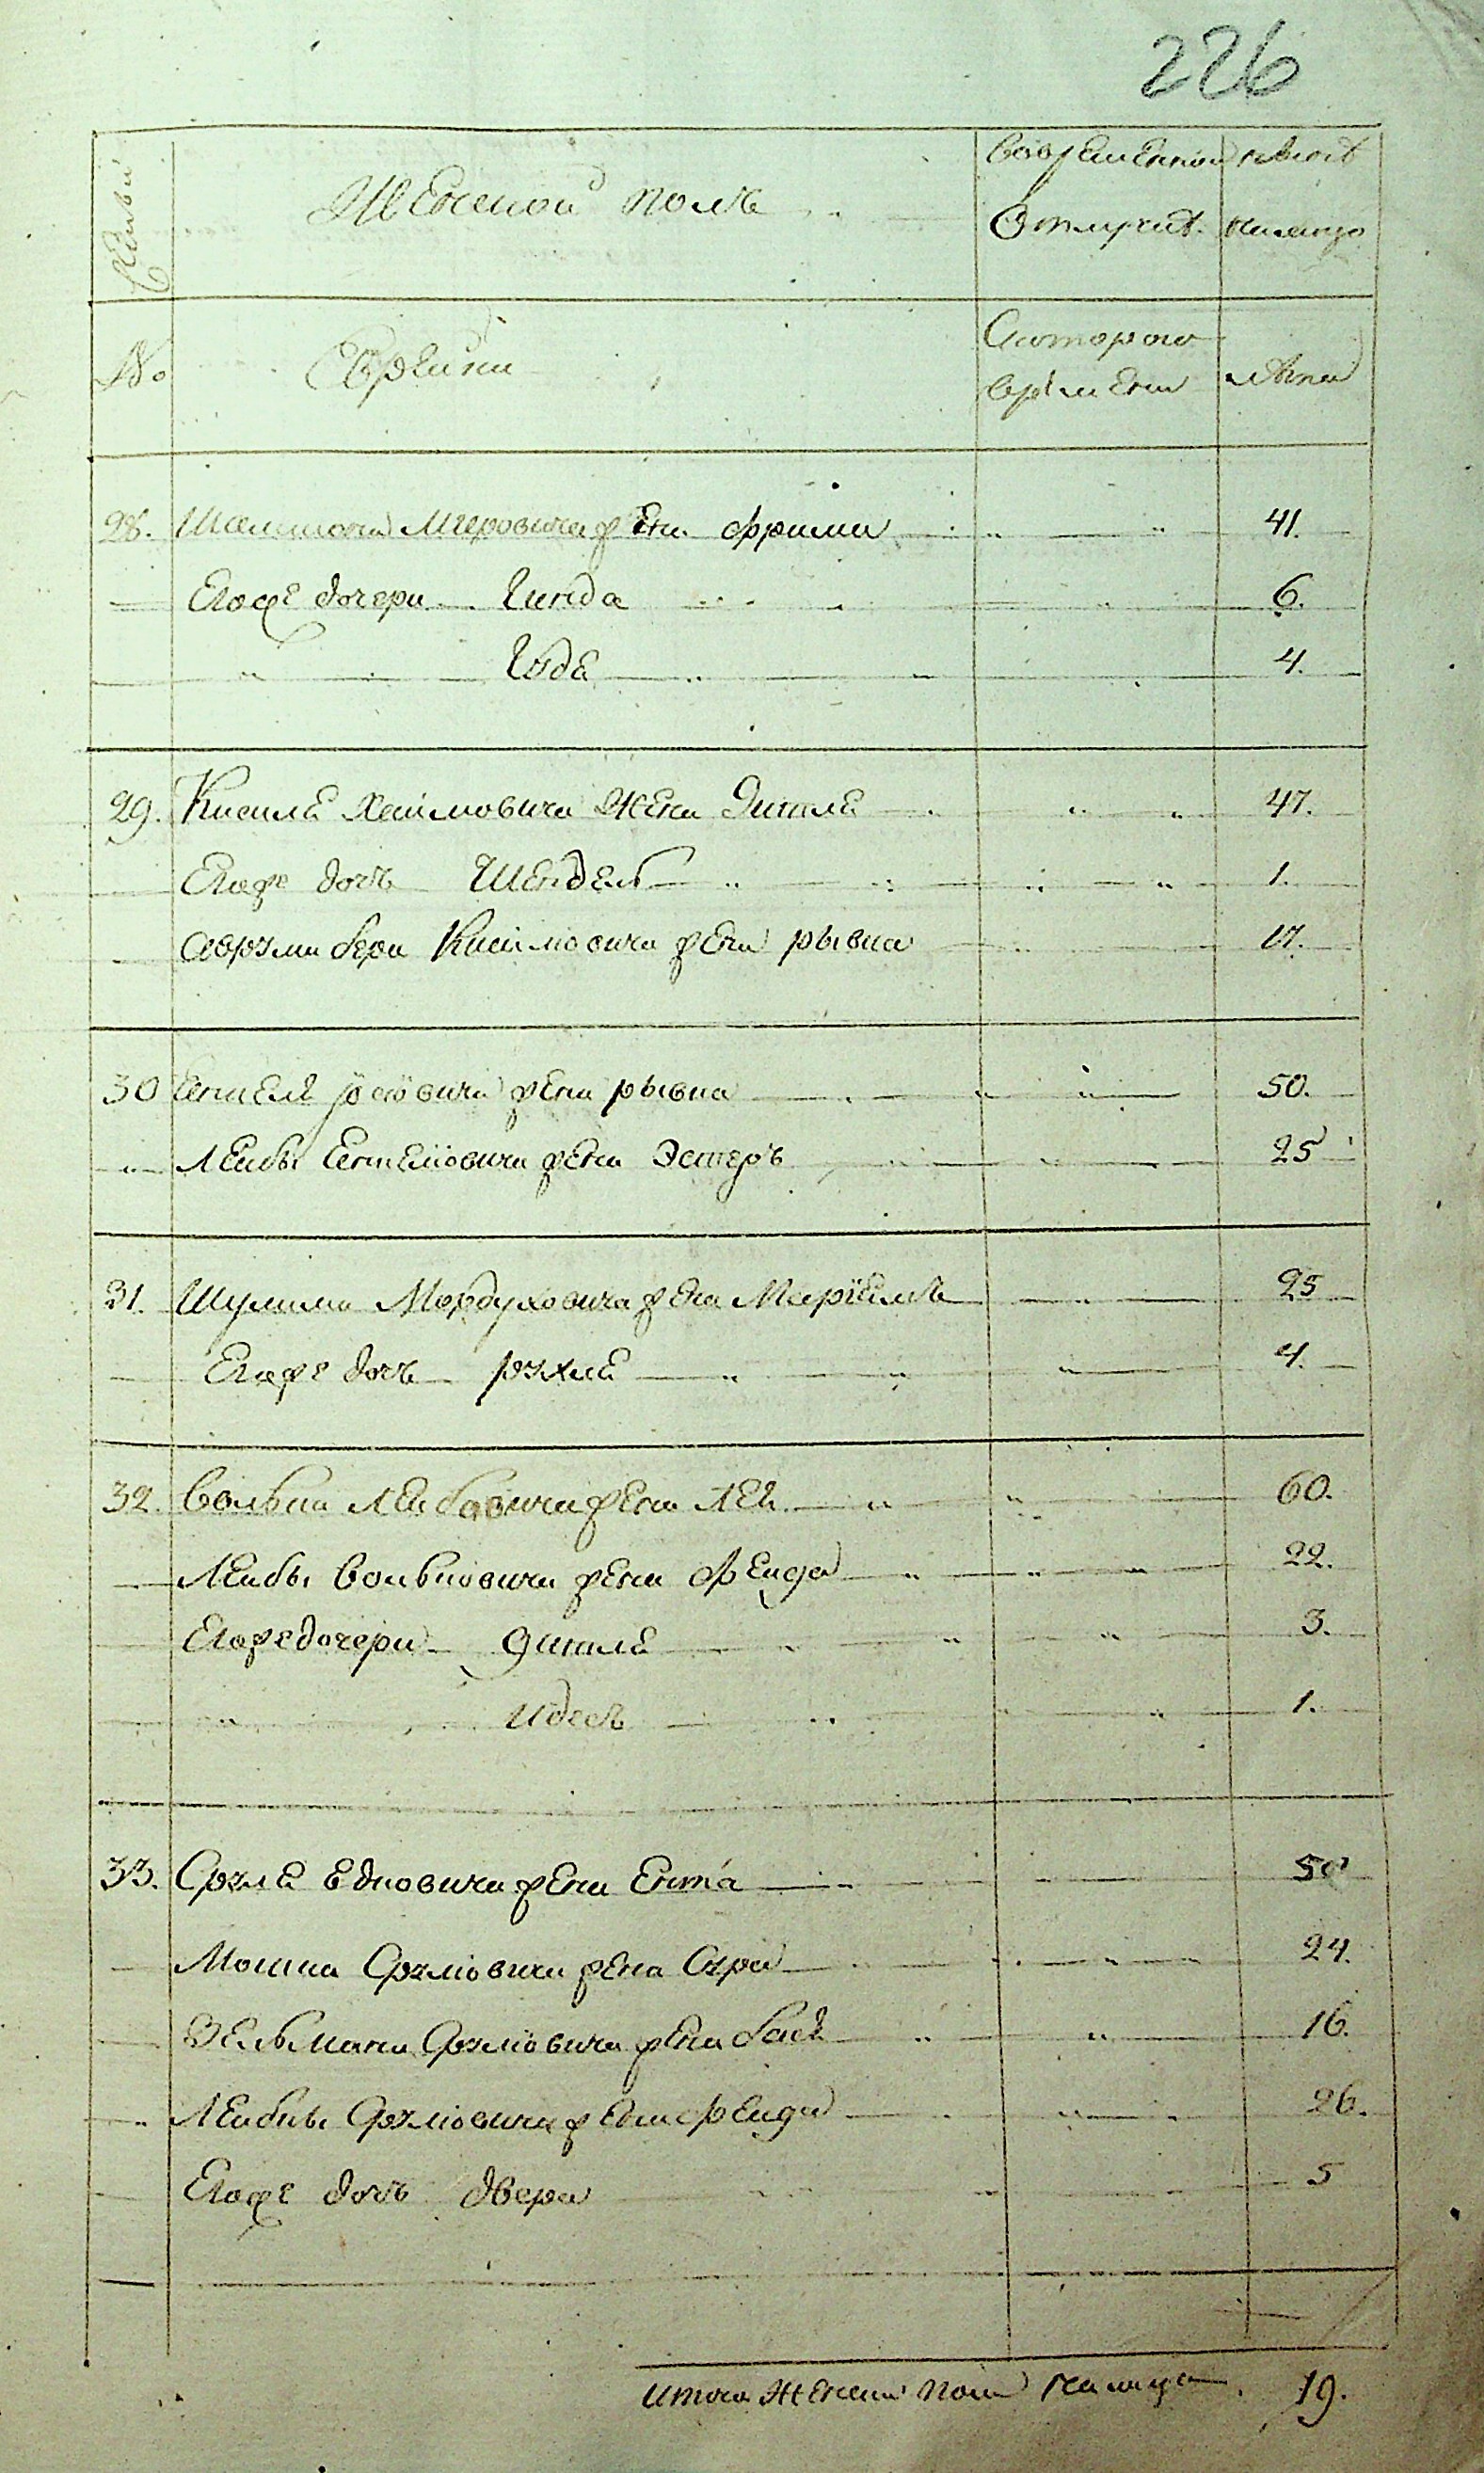 226
Семьи
Женской полъ
Во временной
Отлучкѣ
Налицо
№
Евреики
Скотораго
времени
Лѣта
28. Шлиомы Меровича жена Фрима 41.
Егоже дочери Гинда 6.
Года 4.
29. Кисиля Хаимовича жена Дишля 47.
Егоже дочь Шендель 1.
Аврума бера Кисилиовича жена рывка 17.
30 жена рывка 50.
Лейбы жена Эстеръ 25
31. Шулима Мордуховича жена Мариемъ 25
Егоже дочь рухля 4.
32. Вольки Лейбовича жена Лея 60.
Лейбы Вольковича жена Фейга 22.
Егоже дочери 3.
Идесъ 1.
33. Сруля жена Ента 50
Мошка Срулиовича жена Сура 24.
Зельмана Срулиовича жена бася 16.
Лейбы Срулиовича жена Фейга 26.
Егоже дочь двера 5
Итого женска пола налицо 19.